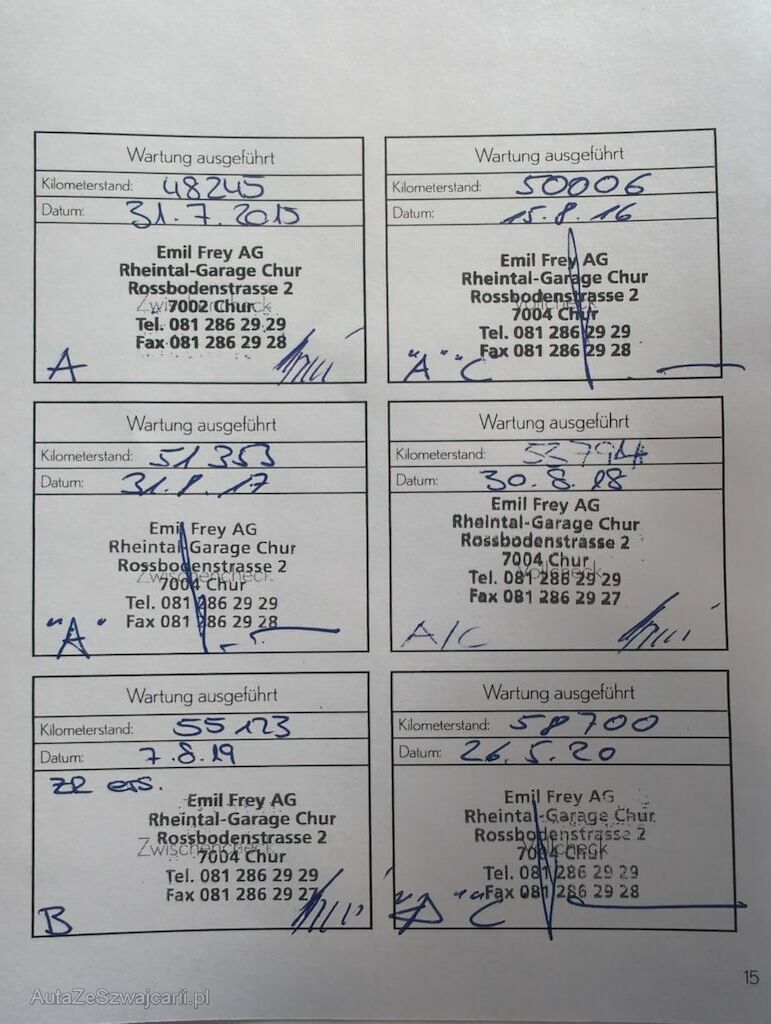 Wartung ausgeführt
Kilometerstand: 48245
Datum: 31.7.2015
Emil Frey AG
Rheintal-Garage Chur
Rossbodenstrasse 2
Zwischencheck
7002 Chur
Tel. 081 286 29 29
Fax 081 286 29 28
A
Wartung ausgeführt
Kilometerstand: 50006
Datum: 15.8.16
Emil Frey AG
Rheintal-Garage Chur
Rossbodenstrasse 2
Vollcheck
7004 Chur
Tel. 081 286 29 29
Fax 081 286 29 28
"A" "C"
Wartung ausgeführt
Kilometerstand: 51353
Datum: 31.8.17
Emil Frey AG
Rheintal-Garage Chur
Rossbodenstrasse 2
Zwischencheck
7004 Chur
Tel. 081 286 29 29
Fax 081 286 29 28
"A"
Wartung ausgeführt
Kilometerstand:
Datum: 30.8.18
Emil Frey AG
Rheintal-Garage Chur
Rossbodenstrasse 2
7004 Chur
Vollcheck
Tel. 081 286 29 29
Fax 081 286 29 27
A/C
Wartung ausgeführt
Kilometerstand: 55123
Datum: 7.8.19
ZR ers.
Emil Frey AG
Rheintal-Garage Chur
Rossbodenstrasse 2
Zwischencheck
7004 Chur
Tel. 081 286 29 29
Fax 081 286 29 27
B
Wartung ausgeführt
Kilometerstand: 58700
Datum: 26.5.20
Emil Frey AG
Rheintal-Garage Chur
Rossbodenstrasse 2
Vollcheck
7004 Chur
Tel. 081 286 29 29
Fax 081 286 29 28
"C"
15
AutaZeSzwajcarii.pl